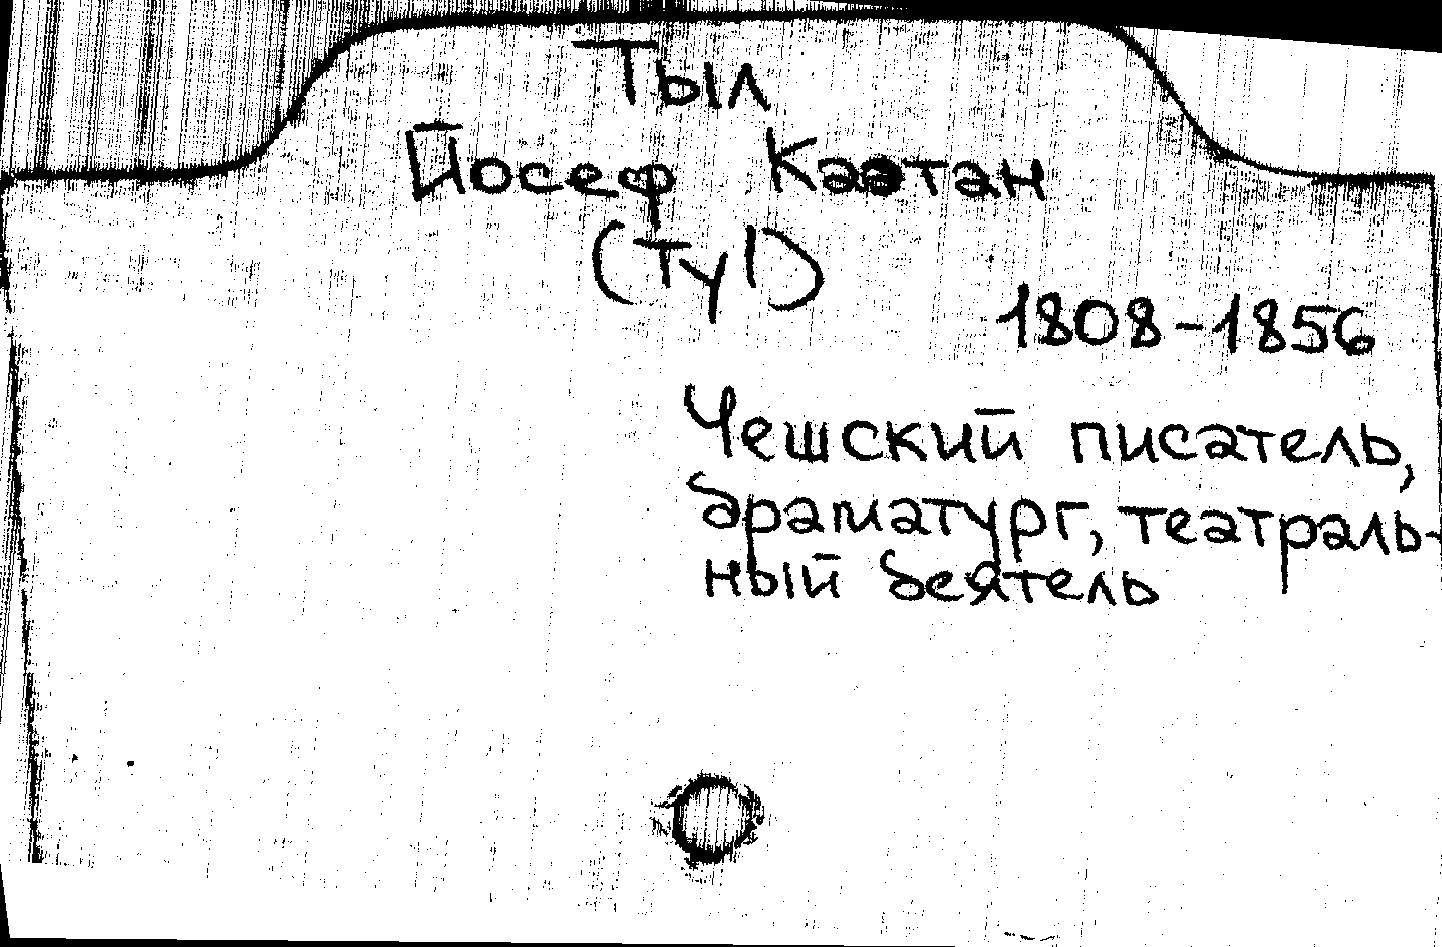 Тыл
Йосеф Каэтан
(Tyl)
1808-1856
Чешский писатель,
драматург, театраль-
ный деятель